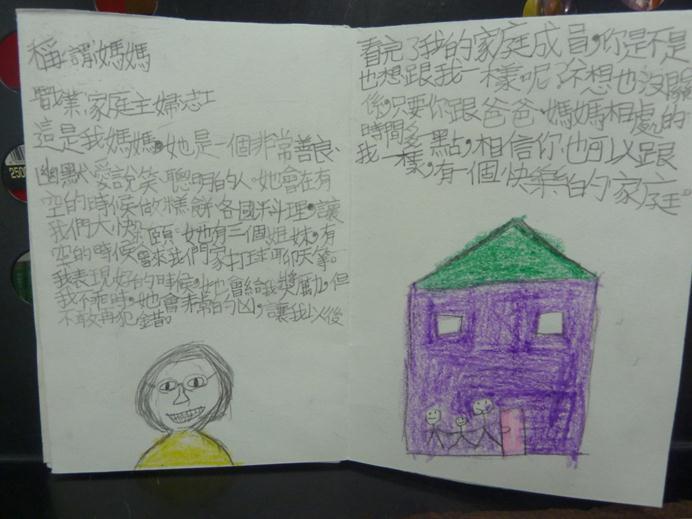 稱謂:媽媽
職業:家庭主婦、志工
這是我媽媽,她是一個非常善良、
幽默、愛說笑、聰明的人。她會在有
空的時候做糕餅、各國料理,讓
我們大快朵頤。她也有三個姐妹,有
空的時候會來我們家打球、聊天等。
我表現好的時候,她會給我獎勵,但
我不乖時,她會非常的凶,讓我以後
不敢再犯錯。
看完了我的家庭成員,你是不是
也想跟我一樣呢?不想也沒關
係,只要你跟爸爸、媽媽相處的
時間多一點,相信你也可以跟
我一樣,有一個快樂的家庭。
250